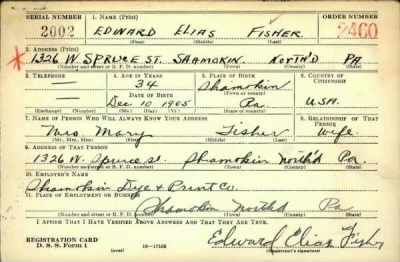 SERIAL NUMBER 1. NAME (Print) ORDER NUMBER
2002 EDWARD ELIAS FISHER. 2460
(First) (Middle) (Last)
2. ADDRESS (Print)
1326 W. SPRUCE ST. SHAMOKIN. NORTH'D PA
(Number and street or R. F. D. number) (Town) (County) (State)
3. TELEPHONE 4. AGE IN YEARS 5. PLACE OF BIRTH 6. COUNTRY OF CITIZENSHIP
— 34 Shamokin
DATE OF BIRTH (Town or county)
Dec 10 1905 Pa. U.S.A.
(Exchange) (Number) (Mo.) (Day) (Yr.) (State or country)
7. NAME OF PERSON WHO WILL ALWAYS KNOW YOUR ADDRESS 8. RELATIONSHIP OF THAT PERSON
Mrs Mary Fisher Wife.
(Mr., Mrs., Miss) (First) (Middle) (Last)
9. ADDRESS OF THAT PERSON
1326 W. Spruce st. Shamokin North'd Pa.
(Number and street or R. F. D. number) (Town) (County) (State)
10. EMPLOYER'S NAME
Shamokin Dye & Print Co.
11. PLACE OF EMPLOYMENT OR BUSINESS
Shamokin North'd Pa
(Number and street or R. F. D. number) (Town) (County) (State)
I AFFIRM THAT I HAVE VERIFIED ABOVE ANSWERS AND THAT THEY ARE TRUE.
REGISTRATION CARD Edward Elias Fisher
D. S. S. Form 1 (over) (Registrant's signature)